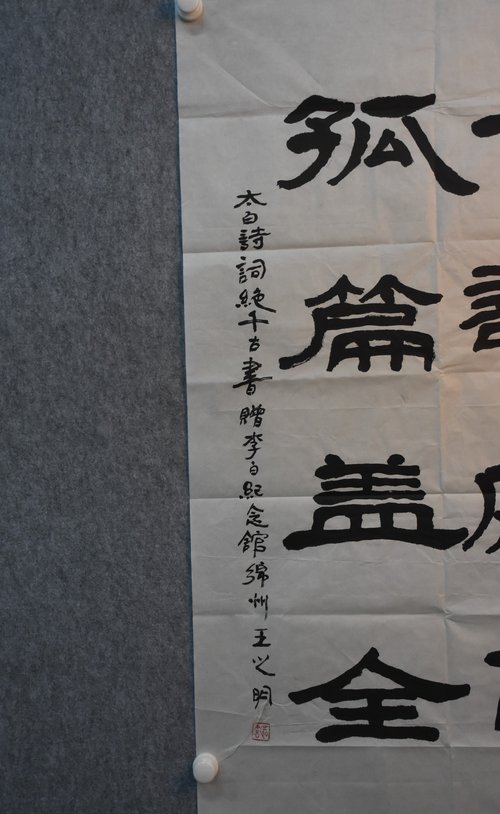 孤篇盖全
太白詩詞絶千古書贈李白紀念館綿州王之明